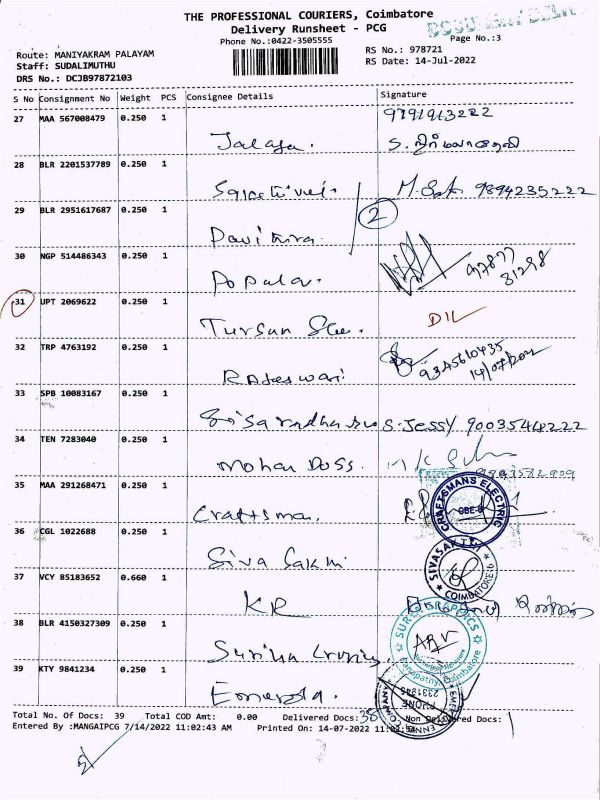 THE PROFESSIONAL COURIERS, Coimbatore
Delivery Runsheet - PCG
Phone No.:0422-3505555
Page No.:3
Route: MANIYAKRAM PALAYAM
RS No.: 978721
Staff: SUDALIMUTHU
RS Date: 14-Jul-2022
DRS No.: DCJB97872103
S No Consignment No Weight PCS Consignee Details Signature
27 MAA 567008479 0.250 1
Jalaja.
28 BLR 2201537789 0.250 1
9894235222
29 BLR 2951617687 0.250 1
2
Pavithra.
30 NGP 514486343 0.250 1
Popular.
97877
31298
31 UPT 2069622 0.250 1
DIL
32 TRP 4763192 0.250 1
Rajeswari
33 SPB 10083167 0.250 1
S. Jessy 9003544222
34 TEN 7283040 0.250 1
Mohan Doss.
35 MAA 291268471 0.250 1
Craftsman.
CRAFTSMANS ELECTRIC
CBE-6
36 CGL 1022688 0.250 1
Siva Sakthi
SIVASAKTHI
COIMBATORE-6
37 VCY 85183652 0.660 1
KR
38 BLR 4150327309 0.250 1
39 KTY 9841234 0.250 1
2331946
PHONE
Total No. Of Docs: 39 Total COD Amt: 0.00 Delivered Docs: 38 Non Delivered Docs: 1
Entered By :MANGAIPCG 7/14/2022 11:02:43 AM Printed On: 14-07-2022 11:02:54